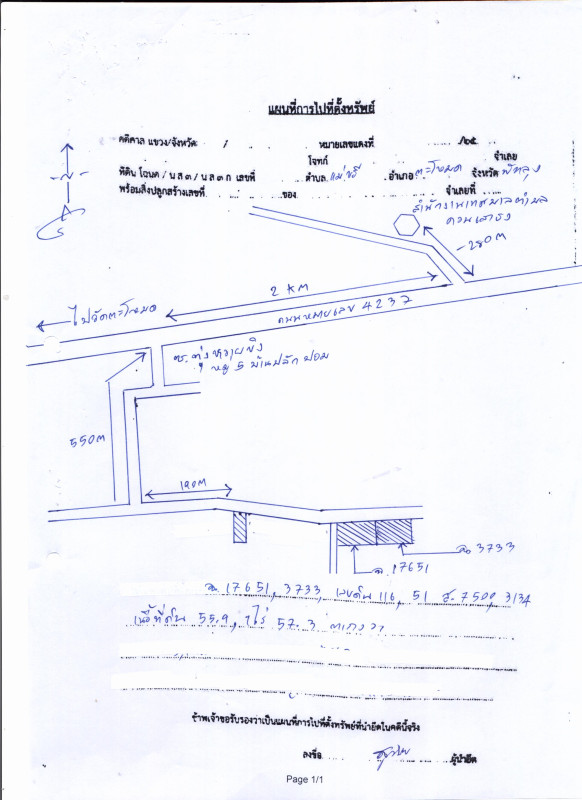 แผนที่การไปที่ตั้งทรัพย์
คดีศาล แขวง/จังหวัด / หมายเลขแดงที่ /๒๕
โจทก์ จำเลย
ที่ดิน โฉนด / น ส ๓ / น ส ๓ ก เลขที่ ตำบล แม่ขรี อำเภอ ตะโหมด จังหวัด พัทลุง
พร้อมสิ่งปลูกสร้างเลขที่ ของ จำเลยที่
สำนักงานเทศบาลตำบล
ควนเสาธง
280 M
2 KM
ไปวัดตะโหมด
ถนนหมายเลข 4237
ซ.ทุ่งหวายขิง
หมู่ 5 บ้านปลักปอม
550 M
190 M
ฉ. 3733
ฉ. 17651
ฉ. 17651, 3733, เลขดิน 116, 51 ส. 7500, 3134
เนื้อที่ดิน 55.9, 1 ไร่ 57.3 ตารางวา
ข้าพเจ้าขอรับรองว่าเป็นแผนที่การไปที่ตั้งทรัพย์ที่นำยึดในคดีนี้จริง
ลงชื่อ ผู้นำยึด
Page 1/1